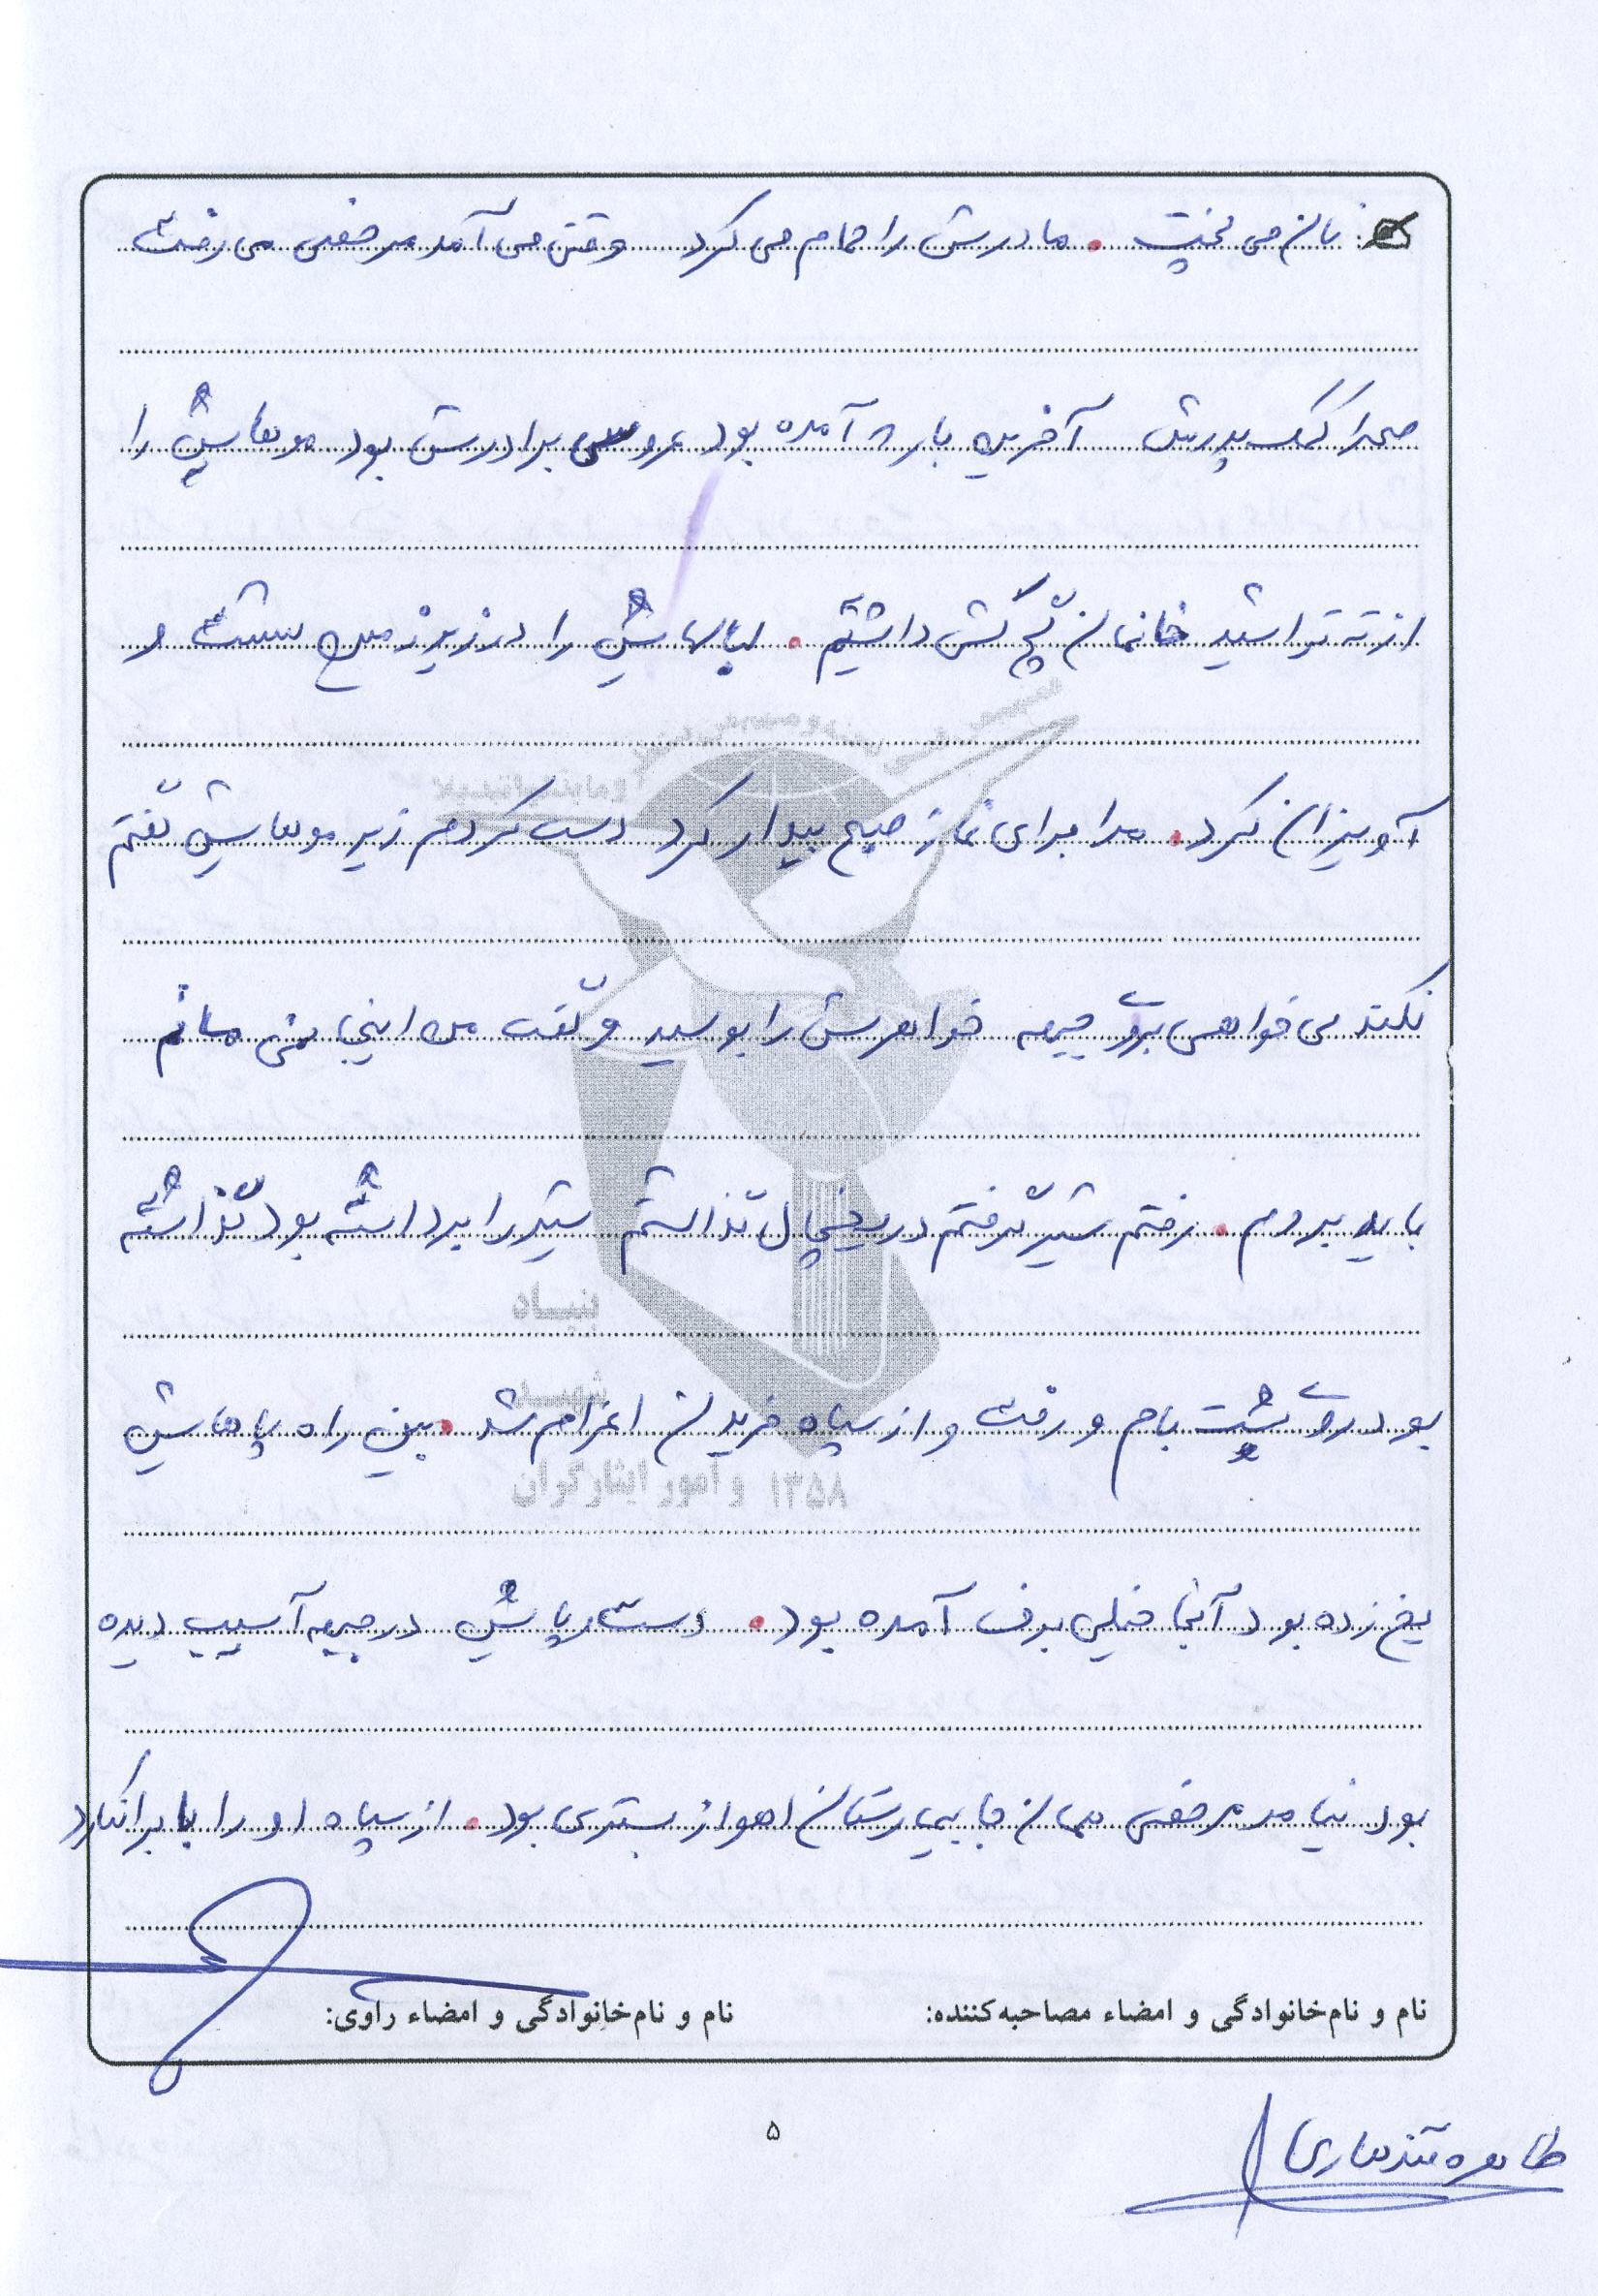 نان می پخت. مادرش را حمام می کرد وقتی می آمد مرخصی می رفت
صحرا کمک پدرش آخرین بار که آمده بود عروسی برادرش بود موهایش را
از ته تراشید خانمان گچ کش داشتیم. لباسهایش را در زیرزمین شست و
آویزان کرد. مرا برای نماز صبح بیدار کرد دست کردم زیر موهایش گفتم
نکند می خواهی بروی جبهه خواهرش را بوسید و گفت من اینجا نمی مانم
باید بروم. رفتم شیر گرفتم در یخچال گذاشتم شیر را برداشته بود گذاشته
بود روی پشت بام و رفت و از سپاه فریدن اعزام شد. بین راه پاهایش
یخ زده بود آنجا خیلی برف آمده بود. دست و پاش در جبهه آسیب دیده
بود نیامد مرخصی همان جا بیمارستان اهواز بستری بود. از سپاه او را با برانکارد
بنیاد
شهید
و امور ایثارگران ۱۳۵۸
نام و نام‌خانوادگی و امضاء مصاحبه‌کننده: نام و نام‌خانوادگی و امضاء راوی:
۵
طاهره